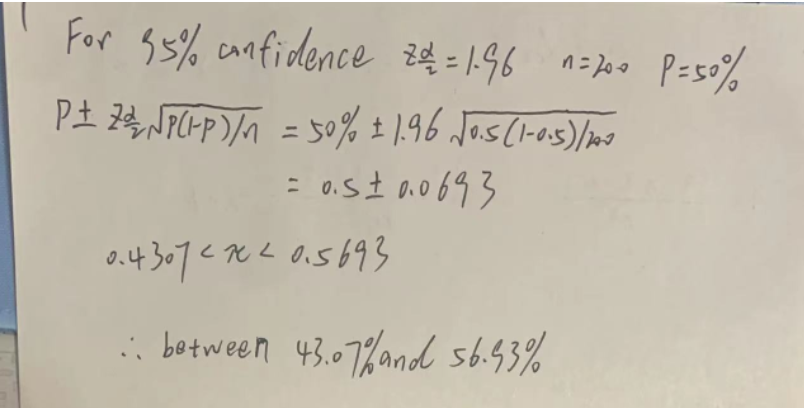 For 95% confidence z α/2 = 1.96 n=200 P=50%
P ± z α/2 √P(1-P)/n = 50% ± 1.96 √0.5(1-0.5)/200
= 0.5 ± 0.0693
0.4307 < x < 0.5693
∴ between 43.07% and 56.93%